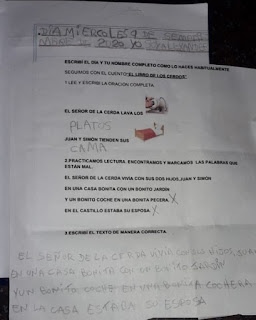 DIA MIERCOLES 9 DE
DE 2020 YO
ESCRIBI EL DIA Y TU NOMBRE COMPLETO COMO LO HACES HABITUALMENTE.
SEGUIMOS CON EL CUENTO "EL LIBRO DE LOS CERDOS"
Y LEE Y ESCRIBI LA ORACION COMPLETA.
EL SEÑOR DE LA CERDA LAVA LOS
PLATOS
JUAN Y SIMÓN TIENDEN SUS
CAMA
2.PRACTICAMOS LECTURA. ENCONTRAMOS Y MARCAMOS LAS PALABRAS QUE
ESTAN MAL.
EL SEÑOR DE LA CERDA VIVIA CON SUS DOS HIJOS,JUAN Y SIMÓN.
EN UNA CASA BONITA CON UN BONITO JARDIN
Y UN BONITO COCHE EN UNA BONITA PECERA X
EN EL CASTILLO ESTABA SU ESPOSA X
3.ESCRIBI EL TEXTO DE MANERA CORRECTA.
EL SEÑOR DE LA CERDA VIVIA CON HIJOS,
EN UNA CASA BONITA CON UN BONITO JARDIN
Y UN BONITO COCHE EN UNA BONITA COCHERA
EN LA CASA ESTABA SU ESPOSA